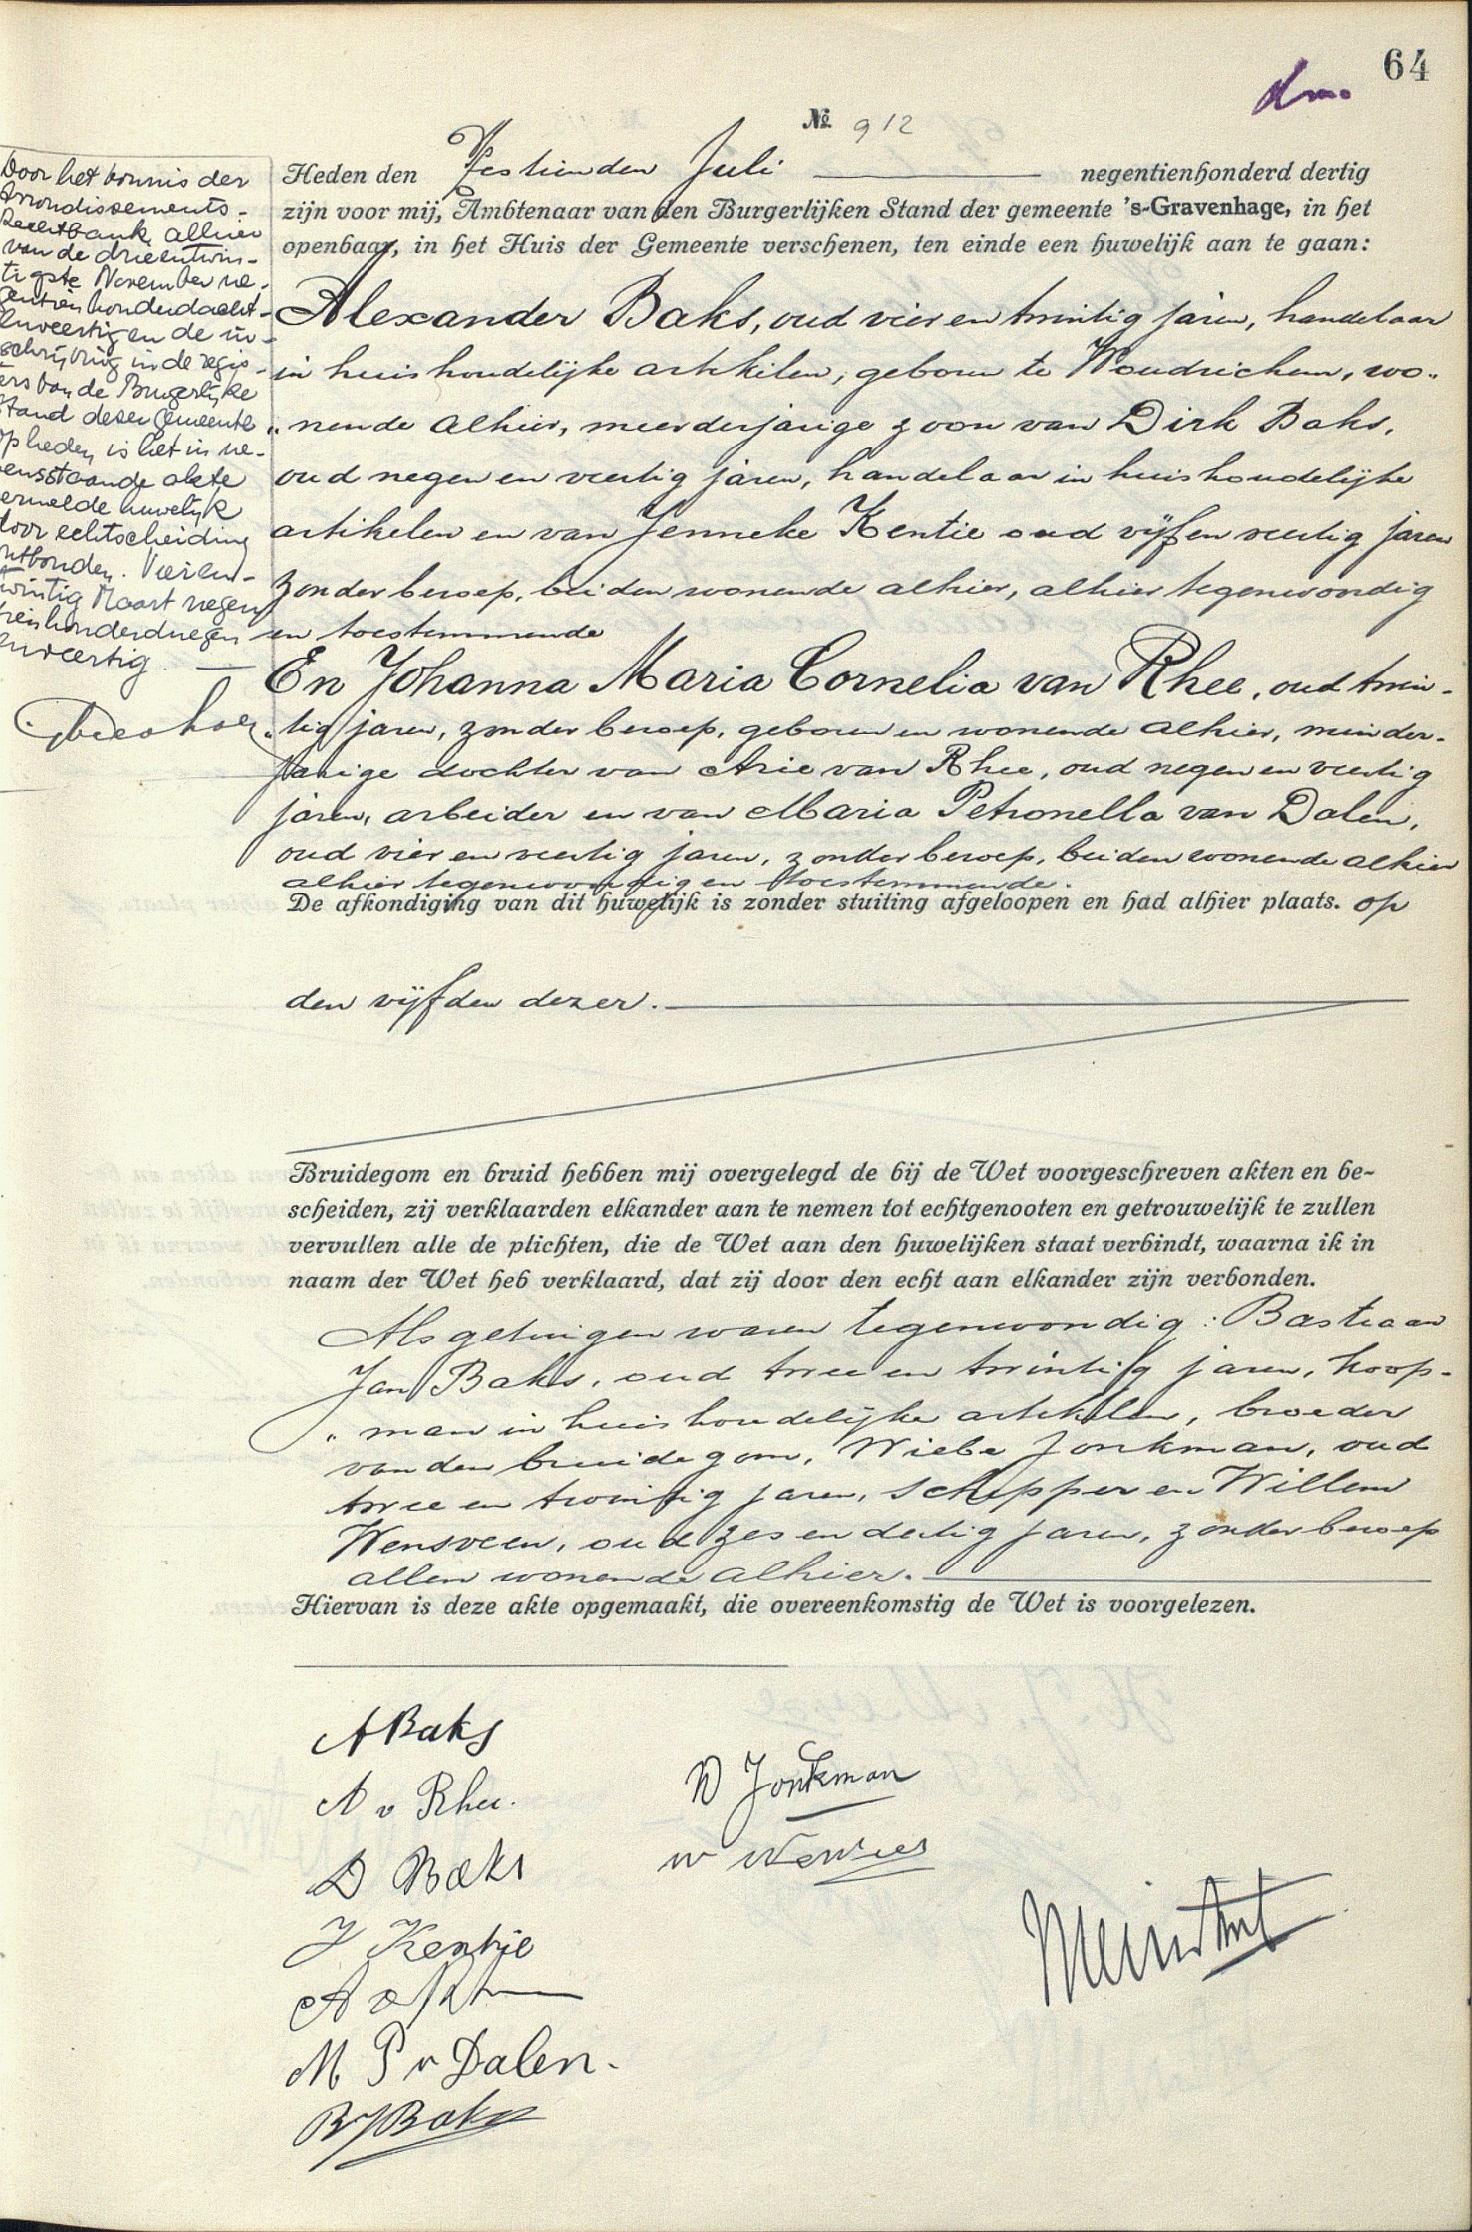 64
№ 912
Door het vonnis der
Arrondissements-
Rechtbank alhier
van de drieentwin-
tigste November ne-
gentienhonderdacht-
enveertig en de in-
schrijving in de regis-
ters van de Burgerlijke
Stand dezer Gemeente
op heden, is het in ne-
vensstaande akte
vermelde huwelijk
door echtscheiding
ontbonden. Vieren-
twintig Maart negen
tienhonderdnegen
enveertig
Heden den Zestienden Juli negentienhonderd dertig
zijn voor mij, Ambtenaar van den Burgerlijken Stand der gemeente 's-Gravenhage, in het
openbaar, in het Huis der Gemeente verschenen, ten einde een huwelijk aan te gaan:
Alexander Baks, oud vier en twintig jaren, handelaar
in huishoudelijke artikelen, geboren te Woudrichem, wo-
"nende alhier, meerderjarige zoon van Dirk Baks,
oud negen en veertig jaren, handelaar in huishoudelijke
artikelen en van Jenneke Kentie oud vijf en veertig jaren
zonder beroep, beiden wonende alhier, alhier tegenwoordig
en toestemmende
En Johanna Maria Cornelia van Rhee, oud twin-
"tig jaren, zonder beroep, geboren en wonende alhier, minder-
jarige dochter van Arie van Rhee, oud negen en veertig
jaren, arbeider en van Maria Petronella van Dalen,
oud vier en veertig jaren, zonder beroep, beiden wonende alhier
alhier tegenwoordig en toestemmende.
De afkondiging van dit huwelijk is zonder stuiting afgeloopen en had alhier plaats. op
den vijfden dezer.
Bruidegom en bruid hebben mij overgelegd de bij de Wet voorgeschreven akten en be-
scheiden, zij verklaarden elkander aan te nemen tot echtgenooten en getrouwelijk te zullen
vervullen alle de plichten, die de Wet aan den huwelijken staat verbindt, waarna ik in
naam der Wet heb verklaard, dat zij door den echt aan elkander zijn verbonden.
Als getuigen waren tegenwoordig: Bastiaan
Jan Baks, oud twee en twintig jaren, koop-
"man in huishoudelijke artikelen, broeder
van den bruidegom, Wiebe Jonkman, oud
twee en twintig jaren, schipper en Willem
Wensveen, oud zes en dertig jaren, zonder beroep
allen wonende alhier.
Hiervan is deze akte opgemaakt, die overeenkomstig de Wet is voorgelezen.
A Baks
A v Rhee.
D Baks
J Kentje
M P v Dalen.
B J Baks
W Jonkman